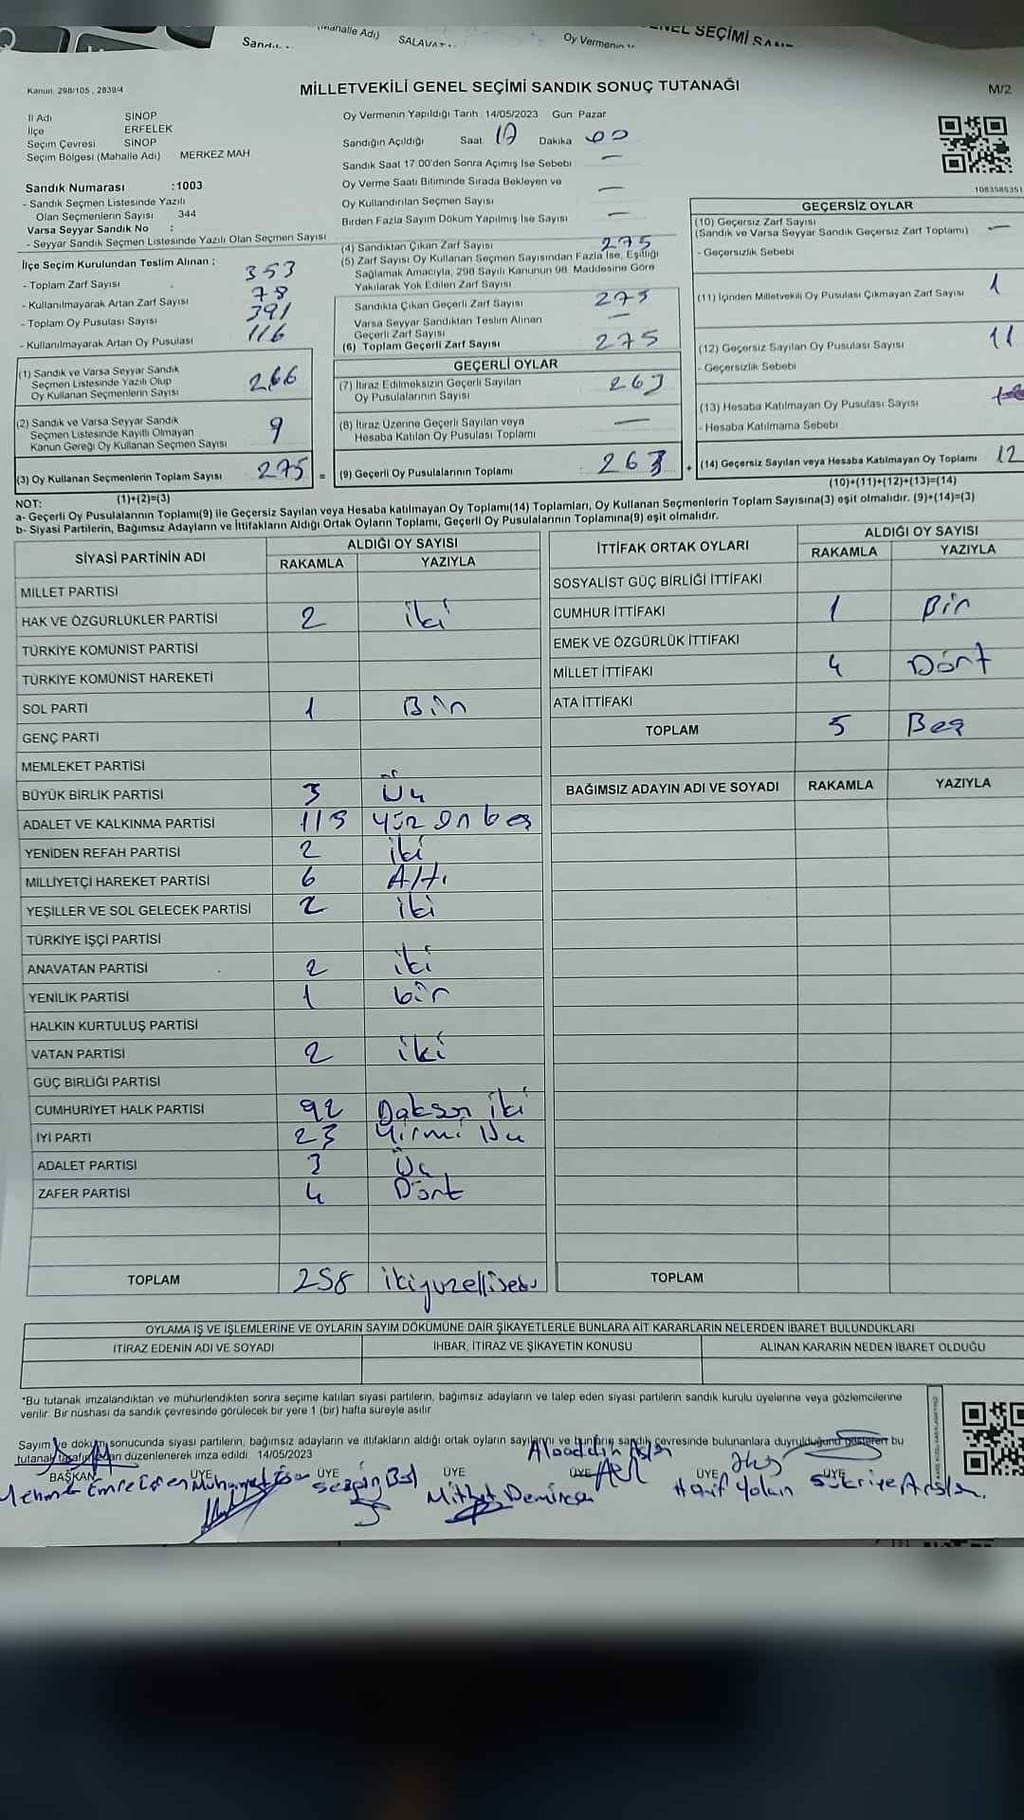 MİLLETVEKİLİ GENEL SEÇİMİ SANDIK SONUÇ TUTANAĞI
Kanun: 298/105 , 2839/4
M/2
İl Adı SİNOP
İlçe ERFELEK
Seçim Çevresi SİNOP
Seçim Bölgesi (Mahalle Adı) MERKEZ MAH
Sandık Numarası :1003
- Sandık Seçmen Listesinde Yazılı
Olan Seçmenlerin Sayısı 344
Varsa Seyyar Sandık No :
- Seyyar Sandık Seçmen Listesinde Yazılı Olan Seçmen Sayısı
İlçe Seçim Kurulundan Teslim Alınan :
- Toplam Zarf Sayısı 353
- Kullanılmayarak Artan Zarf Sayısı 78
- Toplam Oy Pusulası Sayısı 391
- Kullanılmayarak Artan Oy Pusulası 116
(1) Sandık ve Varsa Seyyar Sandık
Seçmen Listesinde Yazılı Olup
Oy Kullanan Seçmenlerin Sayısı 266
(2) Sandık ve Varsa Seyyar Sandık
Seçmen Listesinde Kayıtlı Olmayan
Kanun Gereği Oy Kullanan Seçmen Sayısı 9
(3) Oy Kullanan Seçmenlerin Toplam Sayısı 275 =
(1)+(2)=(3)
Oy Vermenin Yapıldığı Tarih 14/05/2023 Gün Pazar
Sandığın Açıldığı Saat 17 Dakika 00
Sandık Saat 17:00'den Sonra Açımış İse Sebebi —
Oy Verme Saati Bitiminde Sırada Bekleyen ve
Oy Kullandırılan Seçmen Sayısı —
Birden Fazla Sayım Döküm Yapılmış İse Sayısı —
(4) Sandıktan Çıkan Zarf Sayısı 275
(5) Zarf Sayısı Oy Kullanan Seçmen Sayısından Fazla İse, Eşitliği
Sağlamak Amacıyla, 298 Sayılı Kanunun 98. Maddesine Göre
Yakılarak Yok Edilen Zarf Sayısı
Sandıkta Çıkan Geçerli Zarf Sayısı 275
Varsa Seyyar Sandıktan Teslim Alınan
Geçerli Zarf Sayısı —
(6) Toplam Geçerli Zarf Sayısı 275
GEÇERLİ OYLAR
(7) İtiraz Edilmeksizin Geçerli Sayılan
Oy Pusulalarının Sayısı 263
(8) İtiraz Üzerine Geçerli Sayılan veya
Hesaba Katılan Oy Pusulası Toplamı —
(9) Geçerli Oy Pusulalarının Toplamı 263 +
1083585351
GEÇERSİZ OYLAR
(10) Geçersiz Zarf Sayısı
(Sandık ve Varsa Seyyar Sandık Geçersiz Zarf Toplamı) —
- Geçersizlik Sebebi
(11) İçinden Milletvekili Oy Pusulası Çıkmayan Zarf Sayısı 1
(12) Geçersiz Sayılan Oy Pusulası Sayısı 11
- Geçersizlik Sebebi
(13) Hesaba Katılmayan Oy Pusulası Sayısı
- Hesaba Katılmama Sebebi
(14) Geçersiz Sayılan veya Hesaba Katılmayan Oy Toplamı 12
(10)+(11)+(12)+(13)=(14)
NOT:
a- Geçerli Oy Pusulalarının Toplamı(9) ile Geçersiz Sayılan veya Hesaba katılmayan Oy Toplamı(14) Toplamları, Oy Kullanan Seçmenlerin Toplam Sayısına(3) eşit olmalıdır. (9)+(14)=(3)
b- Siyasi Partilerin, Bağımsız Adayların ve İttifakların Aldığı Ortak Oyların Toplamı, Geçerli Oy Pusulalarının Toplamına(9) eşit olmalıdır.
SİYASİ PARTİNİN ADI ALDIĞI OY SAYISI
RAKAMLA YAZIYLA
MİLLET PARTİSİ
HAK VE ÖZGÜRLÜKLER PARTİSİ 2 iki
TÜRKİYE KOMÜNİST PARTİSİ
TÜRKİYE KOMÜNİST HAREKETİ
SOL PARTİ 1 Bir
GENÇ PARTİ
MEMLEKET PARTİSİ
BÜYÜK BİRLİK PARTİSİ 3 Üç
ADALET VE KALKINMA PARTİSİ 115 yüz on beş
YENİDEN REFAH PARTİSİ 2 iki
MİLLİYETÇİ HAREKET PARTİSİ 6 Altı
YEŞİLLER VE SOL GELECEK PARTİSİ 2 iki
TÜRKİYE İŞÇİ PARTİSİ
ANAVATAN PARTİSİ 2 iki
YENİLİK PARTİSİ 1 bir
HALKIN KURTULUŞ PARTİSİ
VATAN PARTİSİ 2 iki
GÜÇ BİRLİĞİ PARTİSİ
CUMHURİYET HALK PARTİSİ 92 Doksan iki
İYİ PARTİ 23 Yirmi Üç
ADALET PARTİSİ 3 Üç
ZAFER PARTİSİ 4 Dört
TOPLAM 258 ikiyüzellisekiz
İTTİFAK ORTAK OYLARI ALDIĞI OY SAYISI
RAKAMLA YAZIYLA
SOSYALİST GÜÇ BİRLİĞİ İTTİFAKI
CUMHUR İTTİFAKI 1 Bir
EMEK VE ÖZGÜRLÜK İTTİFAKI
MİLLET İTTİFAKI 4 Dört
ATA İTTİFAKI
TOPLAM 5 Beş
BAĞIMSIZ ADAYIN ADI VE SOYADI RAKAMLA YAZIYLA
TOPLAM
OYLAMA İŞ VE İŞLEMLERİNE VE OYLARIN SAYIM DÖKÜMÜNE DAİR ŞİKAYETLERLE BUNLARA AİT KARARLARIN NELERDEN İBARET BULUNDUKLARI
İTİRAZ EDENİN ADI VE SOYADI İHBAR, İTİRAZ VE ŞİKAYETİN KONUSU ALINAN KARARIN NEDEN İBARET OLDUĞU
*Bu tutanak imzalandıktan ve mühürlendikten sonra seçime katılan siyasi partilerin, bağımsız adayların ve talep eden siyasi partilerin sandık kurulu üyelerine veya gözlemcilerine
verilir. Bir nüshası da sandık çevresinde görülecek bir yere 1 (bir) hafta süreyle asılır.
Sayım ve döküm sonucunda siyasi partilerin, bağımsız adayların ve ittifakların aldığı ortak oyların sayılarını ve bunların sandık çevresinde bulunanlara duyrulduğunu gösteren bu
tutanak tarafımızdan düzenlenerek imza edildi 14/05/2023
BAŞKAN ÜYE ÜYE ÜYE ÜYE ÜYE ÜYE
Mehmet Emre Muhammet Sezgin Bal Mithat Demircan Alaaddin Aslan Hanif Yalan Şükriye Arslan